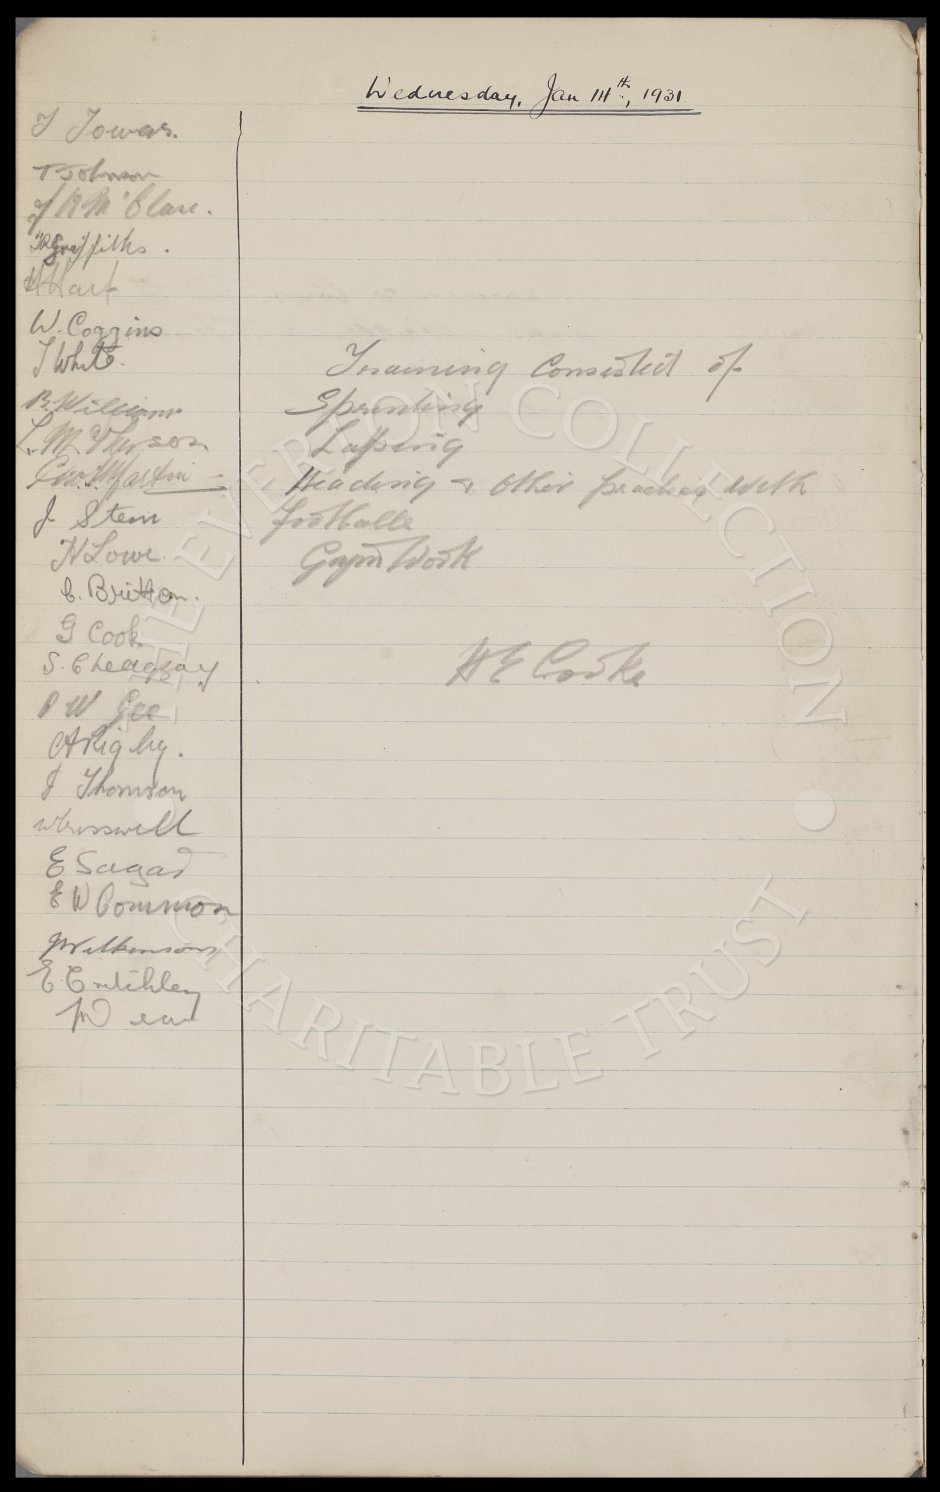 Wednesday, Jan 14th, 1931
J Towers.
T Johnson
J R McClare.
Griffiths.
H Hart
W. Coggins
T White.
B. Williams
L. McPherson
Geo. Martin
J Stein
H Lowe.
C. Britton.
G Cook
S. C Leadgsay
P W Gee
A Rigby.
J Thomson
W Cresswell
E Sagar
E W Common
Wilkinson
E. Critchley
W Dean
Trainining Consisted of
Sprinting
Lapping
Heading & Other practice with
footballs
Gym Work
H E Cooke
THE EVERTON COLLECTION • CHARITABLE TRUST •